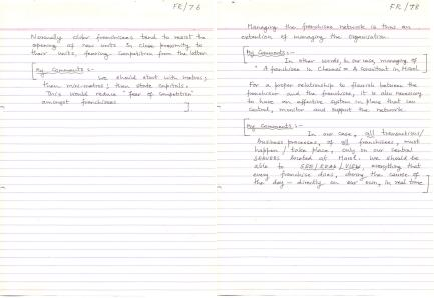 FR/76
Normally older franchisees tend to resist the
opening of new units in close proximity to
their units, fearing competition from the latter.
My Comments :-
We should start with metros;
then mini-metros; then state capitals.
This would reduce "fear of competition"
amongst franchisees
FR/78
Managing the franchisee network is thus an
extention of managing the organisation.
My Comments :-
In other words, in our case, managing of
" A franchisee in Chennai = A Consultant in
For a proper relationship to flourish between the
franchisor and the franchisee, it is also necessary
to have an effective system in place that can
control, monitor and support the network.
My Comments :-
In our case, all transactions/
business processes, of all franchisees, must
happen / take place, only on our central
SERVERS located at. We should be
able to SEE / READ / VIEW, everything that
every franchise does, during the course of
the day - directly on our own, in real time